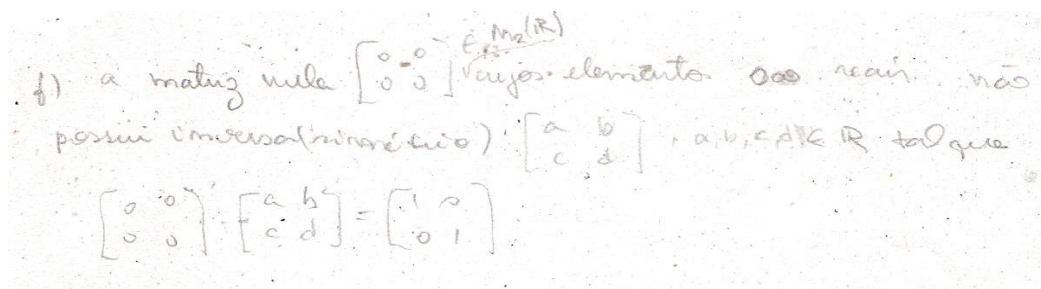 f) a matriz nula [0 0 0 0] ∈ M2(R) cujos elementos são reais não
possui inversa (simétrico) [a b c d], a, b, c, d ∈ R tal que
[0 0 0 0] · [a b c d] = [1 0 0 1]